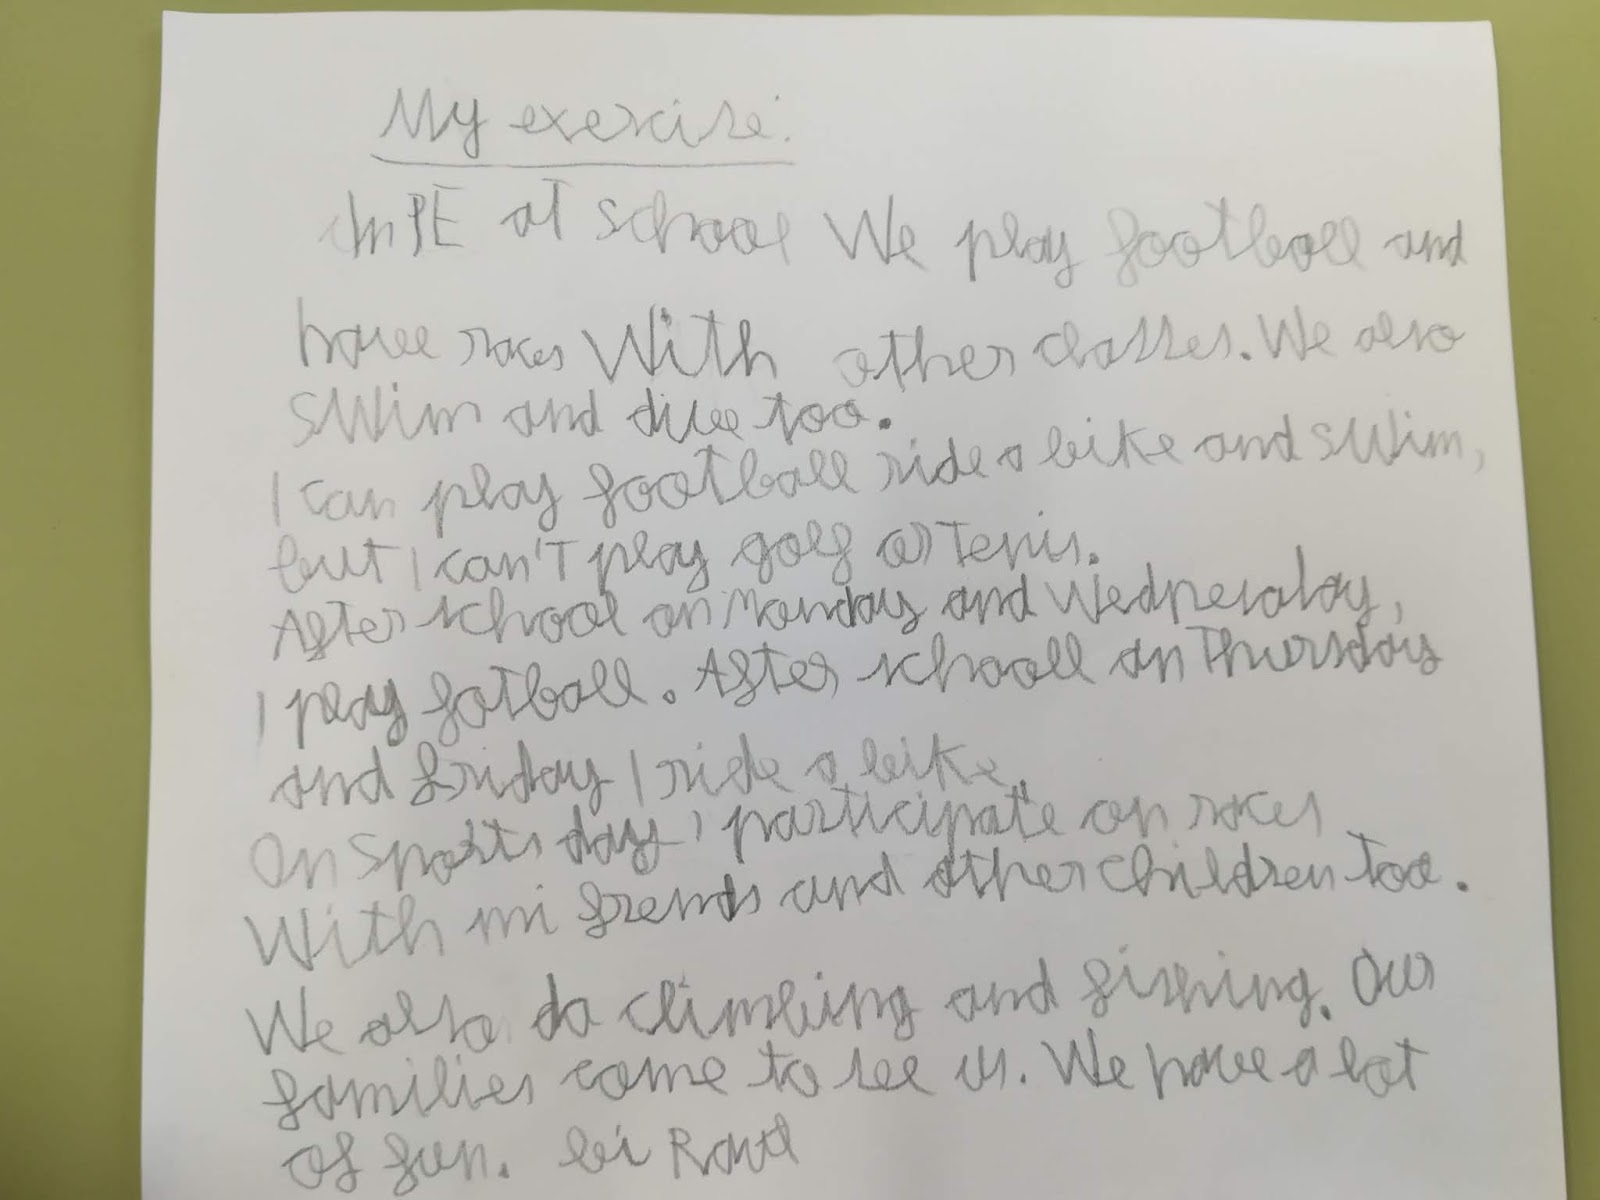 My exercise.
In PE at school We play football and
have races With other classes. We also
sWim and dive too.
I can play football ride a bike and sWim,
but I can't play golf or Tenis.
After school on Monday and Wednesday,
I play fotball. After schooll on Thursday
and friday I ride a bike.
On Sports day I participate on races
With mi frends and other children too.
We also do climbing and fishing. Our
families come to see us. We have a lot
of fun. bi Raul